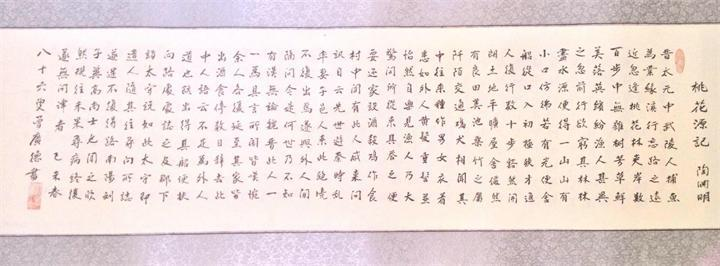 桃花源記 陶淵明
晉太元中武陵人捕魚
為業緣溪行忘路之遠
近忽逢桃花林夾岸數
百步中無雜樹芳草鮮
美落英繽紛漁人甚異
之前行欲窮其林林
盡水源便得一山山有
小口仿彿若有光便舍
船從口入初極狹才通
人復行數十步豁然開
朗土地平曠屋舍儼然
有良田美池桑竹之屬
阡陌交通雞犬相聞其
中往來種作男女衣著
悉如外人黃髮垂髫並
怡然自樂見漁人乃大
驚問所從來具答之便
要還家設酒殺雞作食
村中聞有此人咸來問
訊自云先世避秦時亂
率妻子邑人來此絕境
不復出焉遂與外人間
隔問今是何世乃不知
有漢無論魏晉此人一
一為具言所聞皆嘆惋
余人各復延至其家皆
出酒食停數日辭去此
中人語云不足為外人
道也既出得其船便扶
向路處處誌之及郡下
詣太守說如此太守即
遣人隨其往尋向所誌
遂迷不復得路南陽劉
子驥高尚士也聞之欣
然規往未果尋病終後
遂無問津者 己未春
八十六叟 廣德書